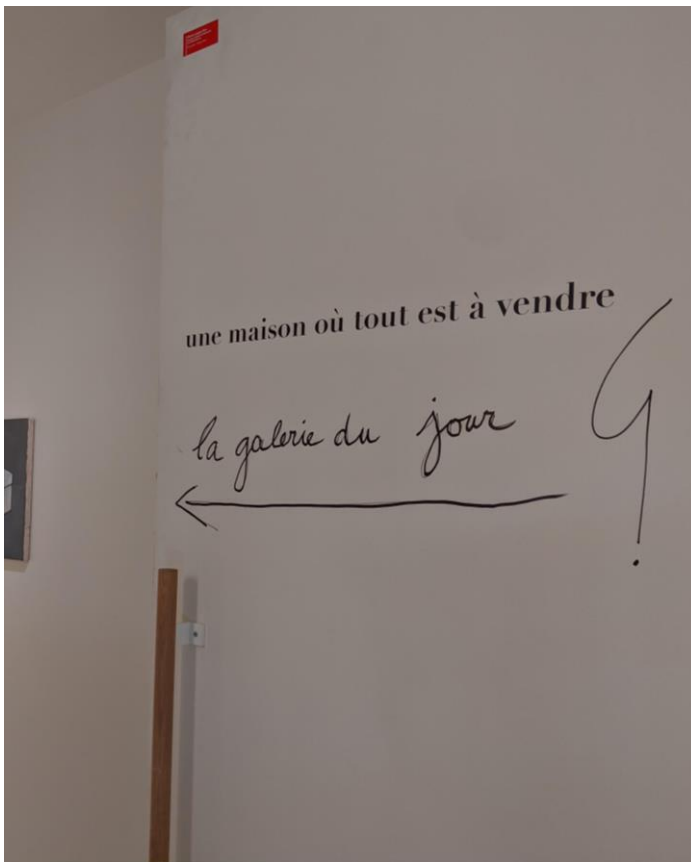 une maison où tout est à vendre
la galerie du jour